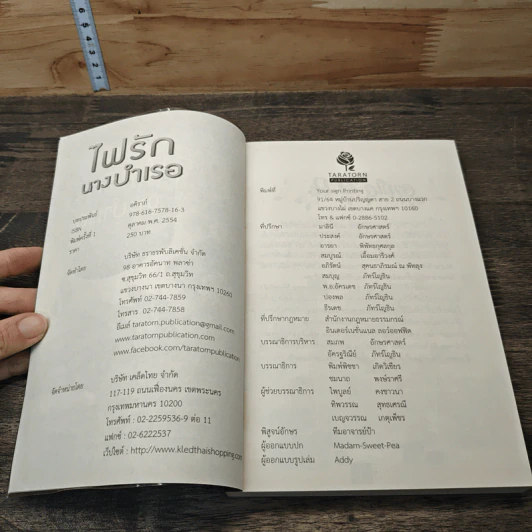 ไฟรัก
นางบำเรอ
บทประพันธ์ อติราภ์
ISBN 978-616-7578-16-3
พิมพ์ครั้งที่ 1 ตุลาคม พ.ศ. 2554
ราคา 250 บาท
จัดทำโดย บริษัท ธราธรพับลิเคชั่น จำกัด
98 อาคารอัคนาท พลาซ่า
ซ.สุขุมวิท 66/1 ถ.สุขุมวิท
แขวงบางนา เขตบางนา กรุงเทพฯ 10260
โทรศัพท์ 02-744-7859
โทรสาร 02-744-7858
อีเมล์ taratorn.publication@gmail.com
www.taratornpublication.com
www.facebook.com/taratornpublication
จัดจำหน่ายโดย บริษัท เคล็ดไทย จำกัด
117-119 ถนนเฟื่องนคร เขตพระนคร
กรุงเทพมหานคร 10200
โทรศัพท์ : 02-2259536-9 ต่อ 11
แฟกซ์ : 02-6222537
เว็บไซต์ : http://www.kledthaishopping.com
TARATORN
PUBLICATION
พิมพ์ที่ Your sign Printing
91/64 หมู่บ้านปริญญดา สาย 2 ถนนบางแวก
แขวงบางไผ่ เขตบางแค กรุงเทพฯ 10160
โทร & แฟกซ์ 0-2886-5102
ที่ปรึกษา มาลินี อักษรศาสตร์
ประสงค์ อักษรศาสตร์
อารดา พิพัทธกุศลกุล
สมบูรณ์ เอื้ออมรวิวงศ์
อภิรัตน์ สุคนธาภิรมณ์ ณ พัทลุง
สมบุญ ภัทรโญธิน
พ.อ.อัครเดช ภัทรโญธิน
ปองพล ภัทรโญธิน
ธีรเดช ภัทรโญธิน
ที่ปรึกษากฎหมาย สำนักงานกฎหมายธรรมกรณ์
อินเตอร์เนชั่นแนล ลอว์ออฟฟิต
บรรณาธิการบริหาร สมภพ อักษรศาสตร์
อัครฐริณีย์ ภัทรโญธิน
บรรณาธิการ พิมพ์พิชชา เกิดวิเชียร
ชมนาถ พงษ์ราศรี
ผู้ช่วยบรรณาธิการ ไพบูลย์ คงชาวนา
ทิพวรรณ สุทธเศรณี
เบญจวรรณ เกตุเพ็ชร
พิสูจน์อักษร ทีมอาจารย์ป้า
ผู้ออกแบบปก Madam-Sweet-Pea
ผู้ออกแบบรูปเล่ม Addy
6 5 4 3 2 1